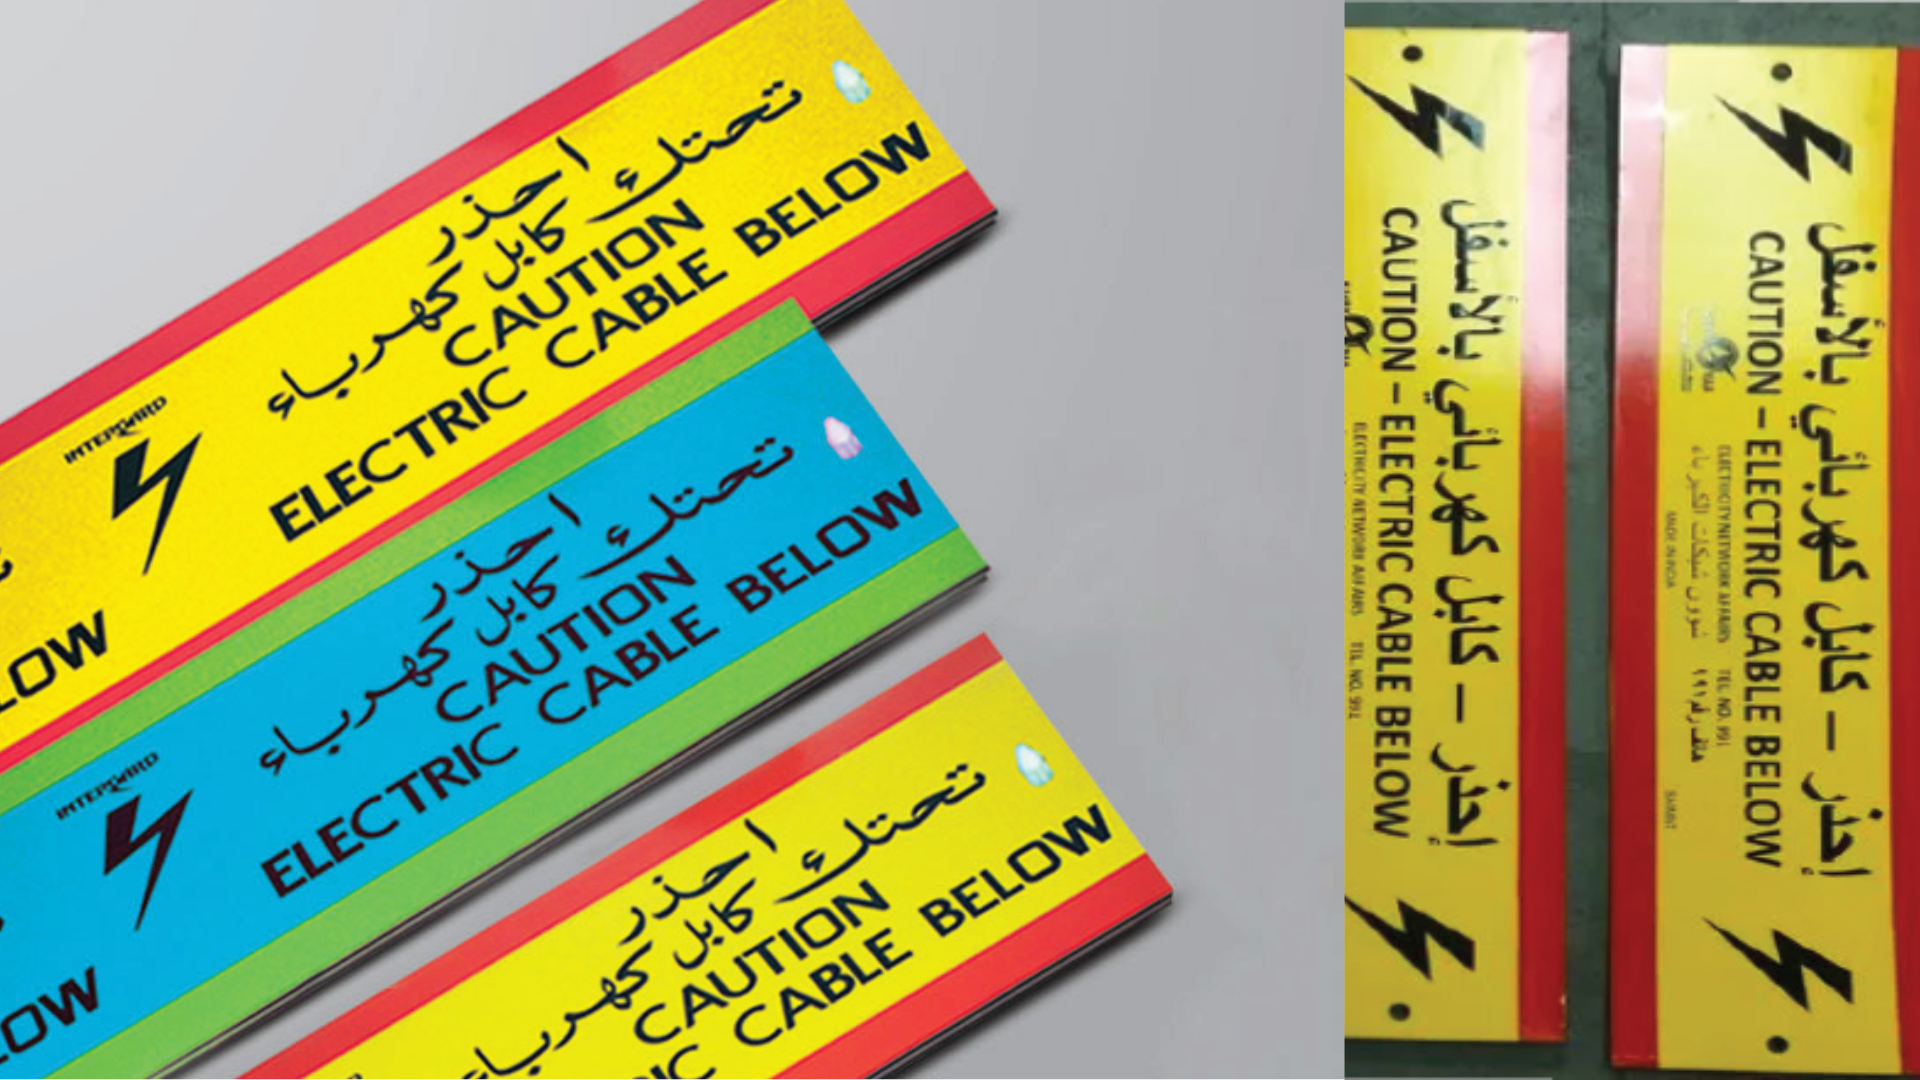 احذر
كابل كهرباء تحتك
CAUTION
ELECTRIC CABLE BELOW
INTERGARD
LOW
احذر
كابل كهرباء تحتك
CAUTION
ELECTRIC CABLE BELOW
INTERGARD
LOW
احذر
كابل كهرباء تحتك
CAUTION
CABLE BELOW
إحذر – كابل كهربائي بالأسفل
CAUTION – ELECTRIC CABLE BELOW
ELECTRICITY NETWORK AFFAIRS TEL. NO. 991
إحذر – كابل كهربائي بالأسفل
CAUTION – ELECTRIC CABLE BELOW
ELECTRICITY NETWORK AFFAIRS TEL. NO. 991
شؤون شبكات الكهرباء هاتف رقم ٩٩١
MADE IN INDIA